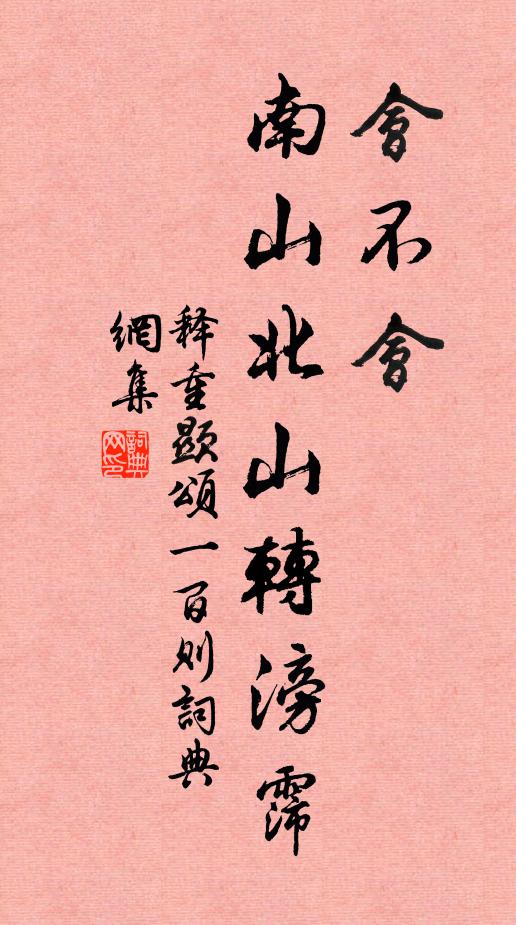 會不會
南山北山轉滂霈
释重顯頌一百则詞典
網集
詞典
网印